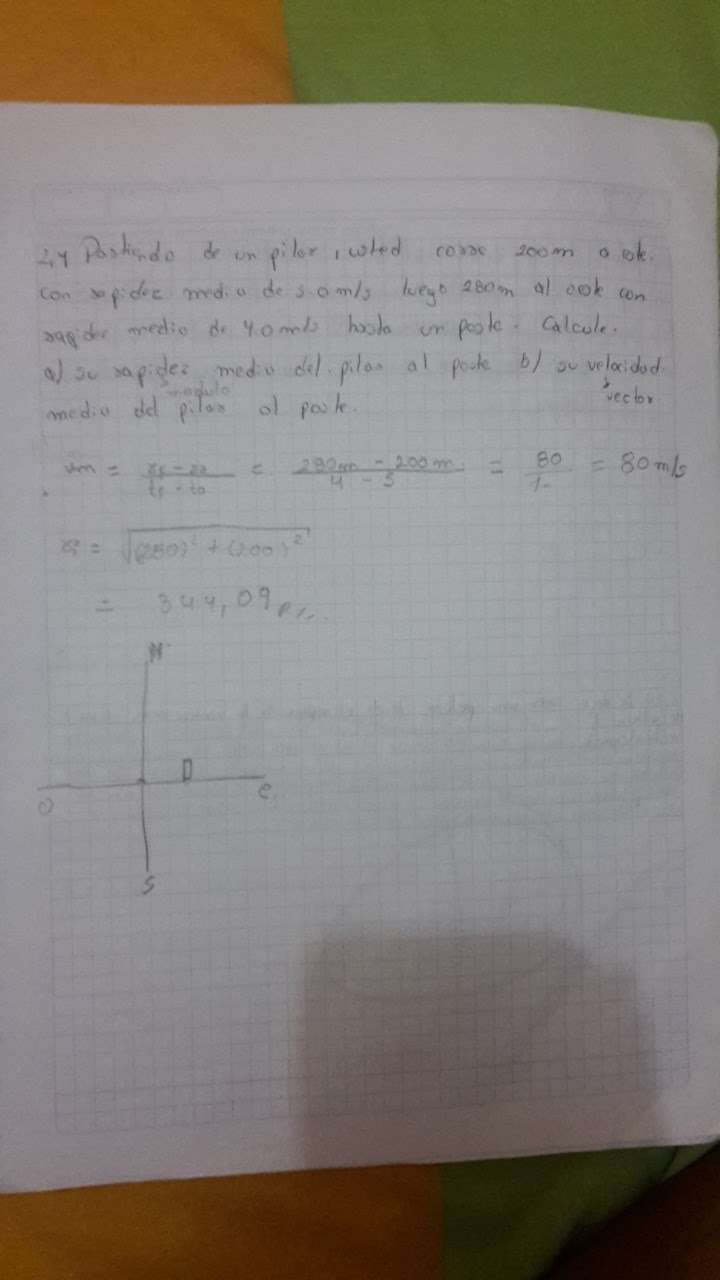 2,4 Partiendo de un pilar, usted corre 200m a
con rapidez media de 5.0 m/s luego 280m al con
rapidez media de 4.0 m/s hasta un poste. Calcule.
a) su rapidez media del pilar al poste b) su velocidad
modulo vector
media del pilar al poste.
vm = xf - xo / tf - to = 280m - 200m / 4 - 5 = 80 / = 80 m/s
= √(280)² + (200)²
= 344,09
N
O e
S